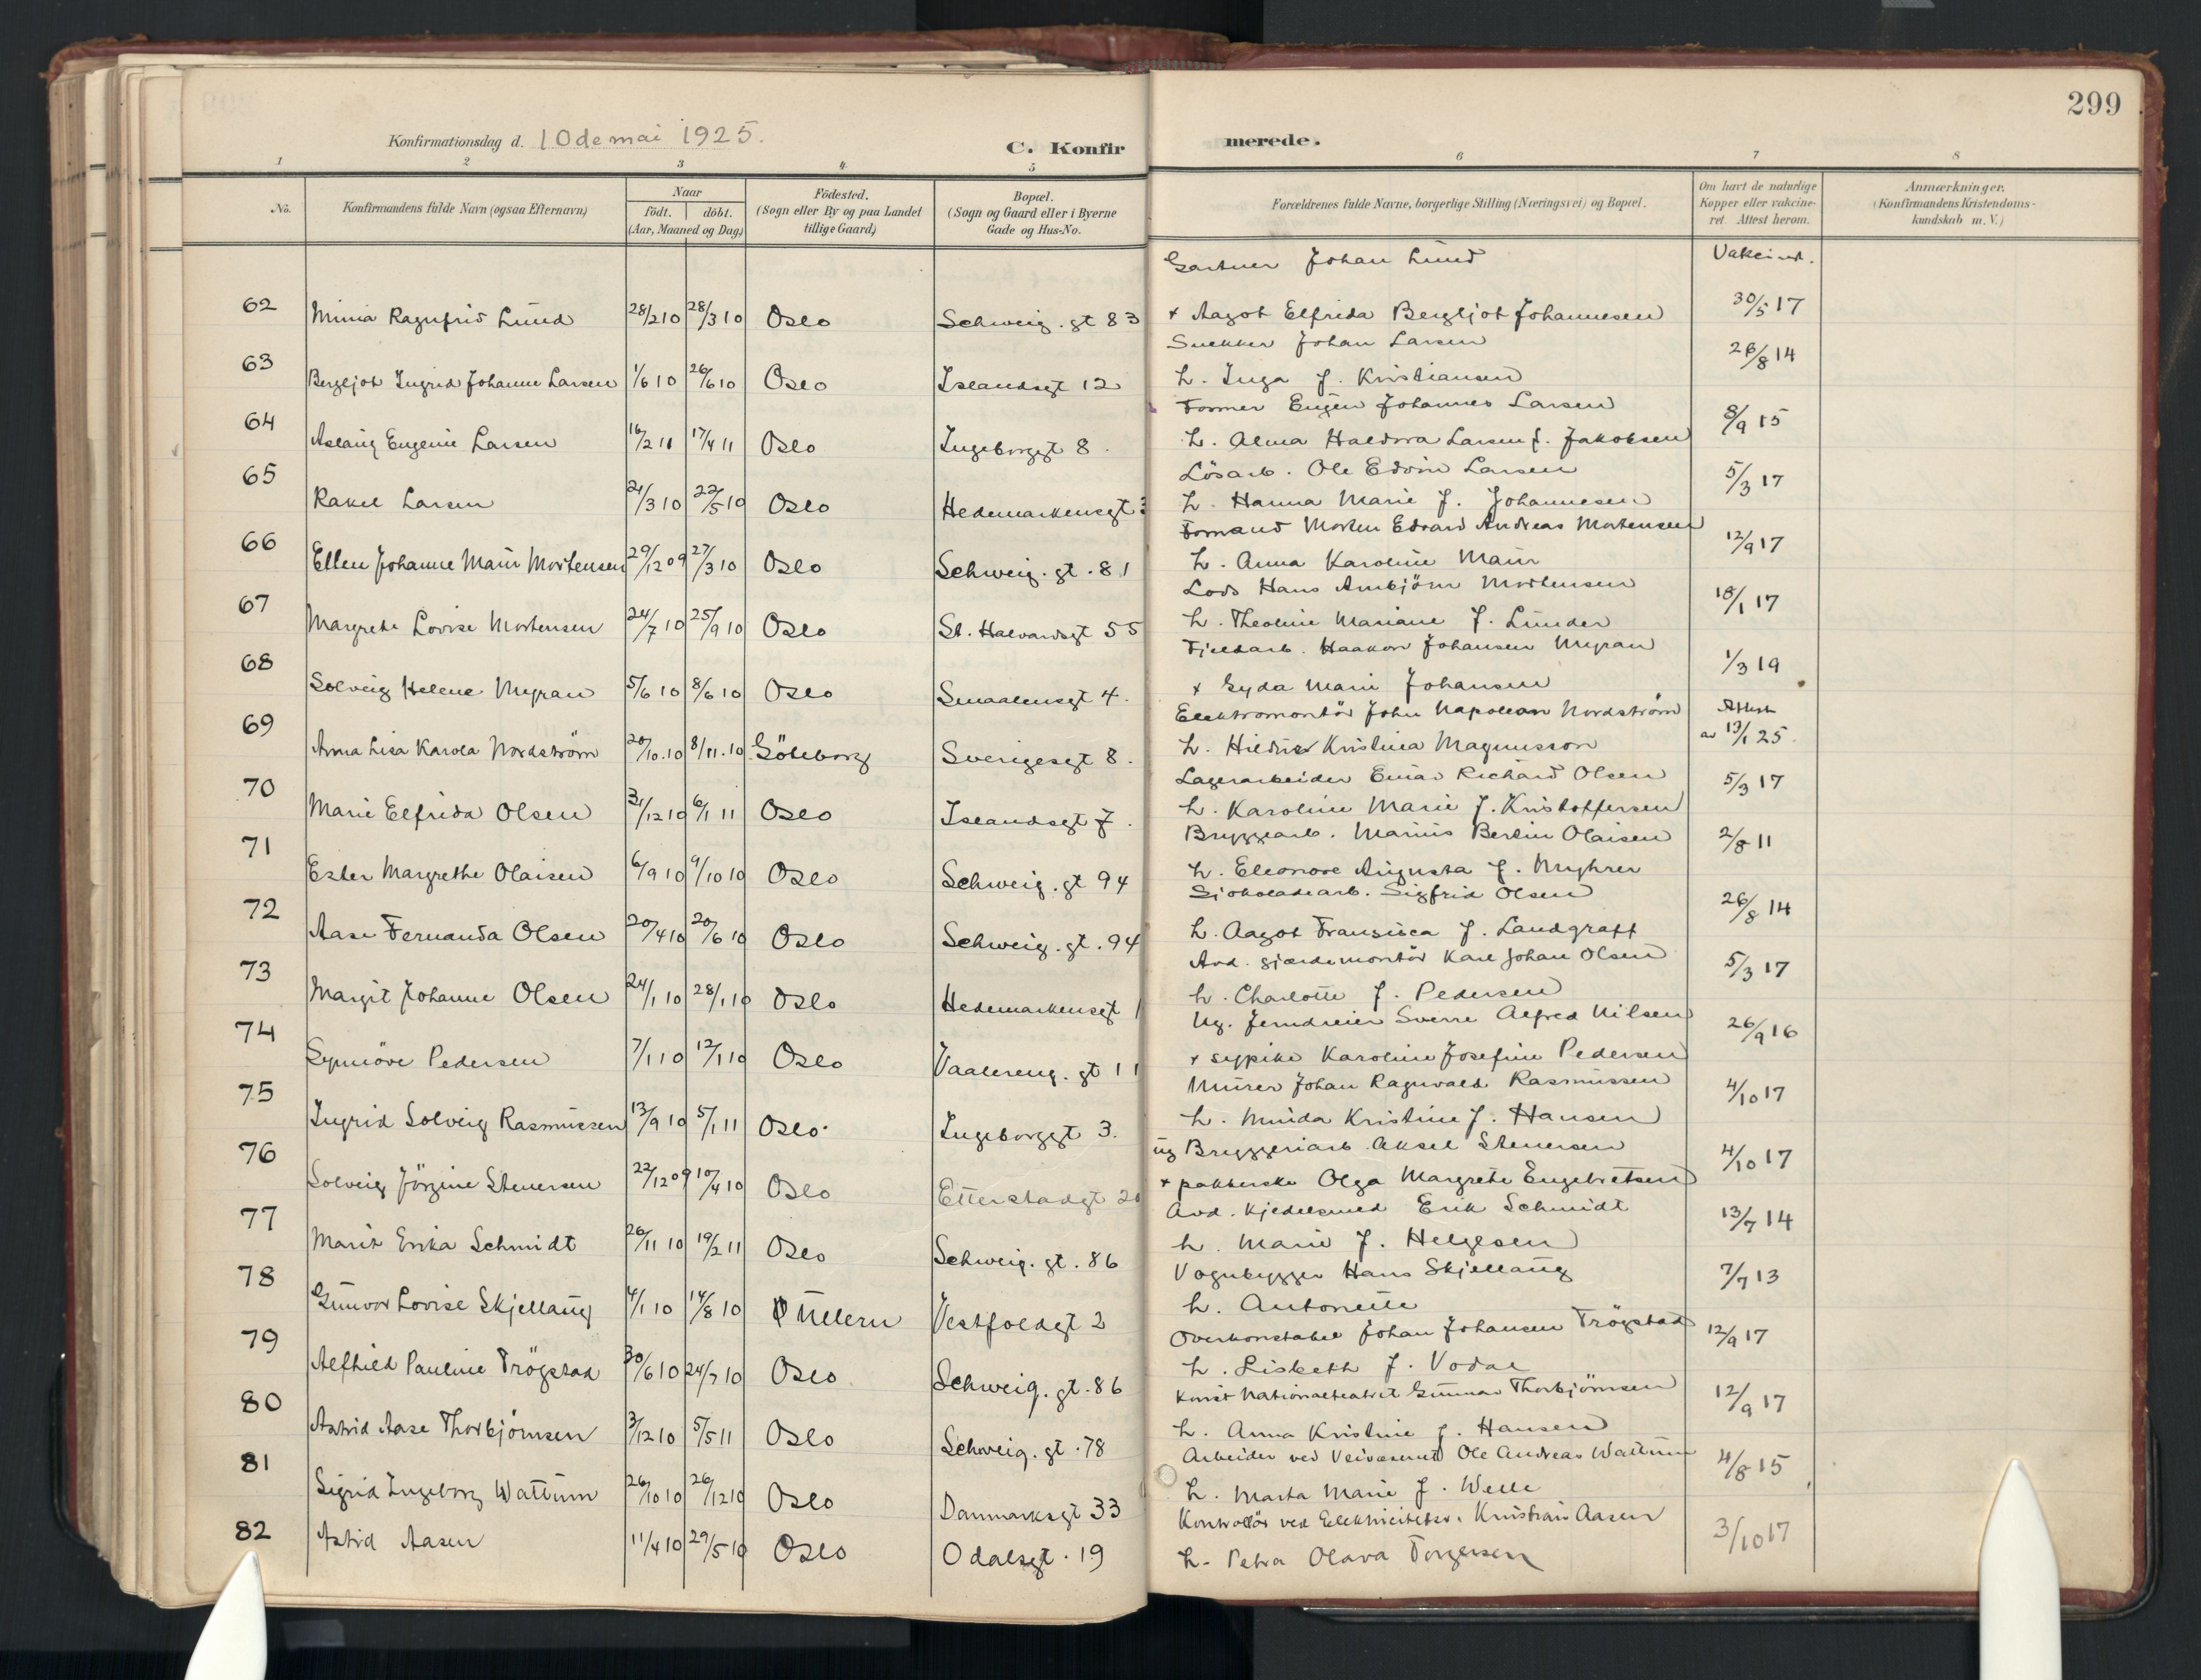 299
Konfirmationsdag d. 10de mai 1925.
C. Konfirmerede.
1 2 3 4 5 6 7 8
No.
Konfirmandens fulde Navn (ogsaa Efternavn)
Naar
födt. döbt.
(Aar, Maaned og Dag)
Födested.
(Sogn eller By og paa Landet
tillige Gaard)
Bopæl.
(Sogn og Gaard eller i Byerne
Gade og Hus-No.
Forældrenes fulde Navne, borgerlige Stilling (Næringsvei) og Bopæl.
Om havt de naturlige
Kopper eller vakcine-
ret. Attest herom.
Anmærkninger.
(Konfirmandens Kristendoms-
kundskab m. V.)
Gartner Johan Lund Vakcinert.
62 Minia Ragnfrid Lund 28/2 10 28/3 10 Oslo Schweig. gt 83 + Aagot Elfrida Bergljot Johannesen 30/5 17
Snekker Johan Larsen
63 Bergljot Ingrid Johanne Larsen 1/6 10 26/6 10 Oslo Islandsgt 12 h. Inga f. Kristiansen 26/8 14
Former Eugen Johannes Larsen
64 Aslaug Eugenie Larsen 16/2 11 17/4 11 Oslo Ingeborggt 8. h. Alma Haldora Larsen f. Jakobsen 8/9 15
Lösarb. Ole Edvin Larsen
65 Rakel Larsen 21/3 10 22/5 10 Oslo Hedemarkensgt 3 h. Hanna Marie f. Johannesen 5/3 17
Formand Morten Edvard Andreas Mortensen
66 Ellen Johanne Marie Mortensen 29/12 09 27/3 10 Oslo Schweig. gt. 81 h. Anna Karoline Marie 12/9 17
Lods Hans Arnbjörn Mortensen
67 Margrethe Lovise Mortensen 24/7 10 25/9 10 Oslo St. Halvardsgt 55 h. Theoline Mariane f. Lunder 18/1 17
Fjeldarb. Haakon Johansen Myran
68 Solveig Helene Myran 5/6 10 8/6 10 Oslo Smaalensgt 4. + Gyda Marie Johansen 1/3 19
Elektromontör John Napolean Nordström Attest
69 Anna Lisa Karola Nordström 20/10.10 8/11.10 Göteborg Sverigesgt 8. h. Kristina Magnusson av 13/1 25.
Lagerarbeider Einar Richard Olsen
70 Marie Elfrida Olsen 31/12 10 6/1 11 Oslo Islandsgt 7. h. Karoline Marie f. Kristoffersen 5/3 17
Bryggearb. Marius Berlin Olaisen
71 Ester Margrethe Olaisen 6/9 10 9/10 10 Oslo Schweig. gt 94 h. Eleonore Augusta f. Myhrer 2/8 11
Sjokoladearb. Sigfrid Olsen
72 Aase Fernanda Olsen 20/4 10 20/6 10 Oslo Schweig. gt. 94 h. Aagot Fransisca f. Landgraff 26/8 14
Avd. gjærdemontör Karl Johan Olsen
73 Margit Johanne Olsen 24/1 10 28/1 10 Oslo Hedemarkensgt 1 h. Charlotte f. Pedersen 5/3 17
Ug. Jerndreier Sverre Alfred Nilsen
74 Synnöve Pedersen 7/1 10 12/1 10 Oslo Vaalereng. gt 11 + sypike Karoline Josefine Pedersen 26/9 16
Murer Johan Ragnvald Rasmussen
75 Ingrid Solveig Rasmussen 13/9 10 5/1 11 Oslo. Ingeborggt 3. h. Minda Kristine f. Hansen 4/10 17
ug Bryggeriarb. Aksel Stenersen
76 Solveig Jörgine Stenersen 22/12 09 10/4 10 Oslo Etterstadgt 20 + pakkerske Olga Margrete Engebretsen 4/10 17
Avd. Kjedelsmed Erik Schmidt
77 Marie Erika Schmidt 26/11 10 19/2 11 Oslo Schweig. gt. 86 h. Marie f. Helgesen 13/7 14
Vognbygger Hans Skjellaug
78 Gunvor Lovise Skjellaug 4/1 10 14/8 10 Ullern Vestfoldgt 2 h. Antonette 7/7 13
Overkonstabel Johan Johansen Trögstad
79 Alfhild Pauline Trögstad 30/6 10 24/7 10 Oslo Schweig. gt. 86 h. Lisbeth f. Vodal 12/9 17
Kunst Nationalteatret Gunnar Thorbjörnsen
80 Astrid Aase Thorbjörnsen 3/12 10 5/5 11 Oslo Schweig. gt. 78 h. Anna Kristine f. Hansen 12/9 17
Arbeider ved Veivæsenet Ole Andreas Wattum
81 Sigrid Ingeborg Wattum 26/10 10 26/12 10 Oslo Danmarksgt 33 h. Marta Marie f. Welle 4/8 15
Kontrollör ved Elektricitetsv. Kristian Aasen
82 Astrid Aasen 11/4 10 29/5 10 Oslo Odalsgt. 19 h. Petra Olava Torgersen 3/10 17